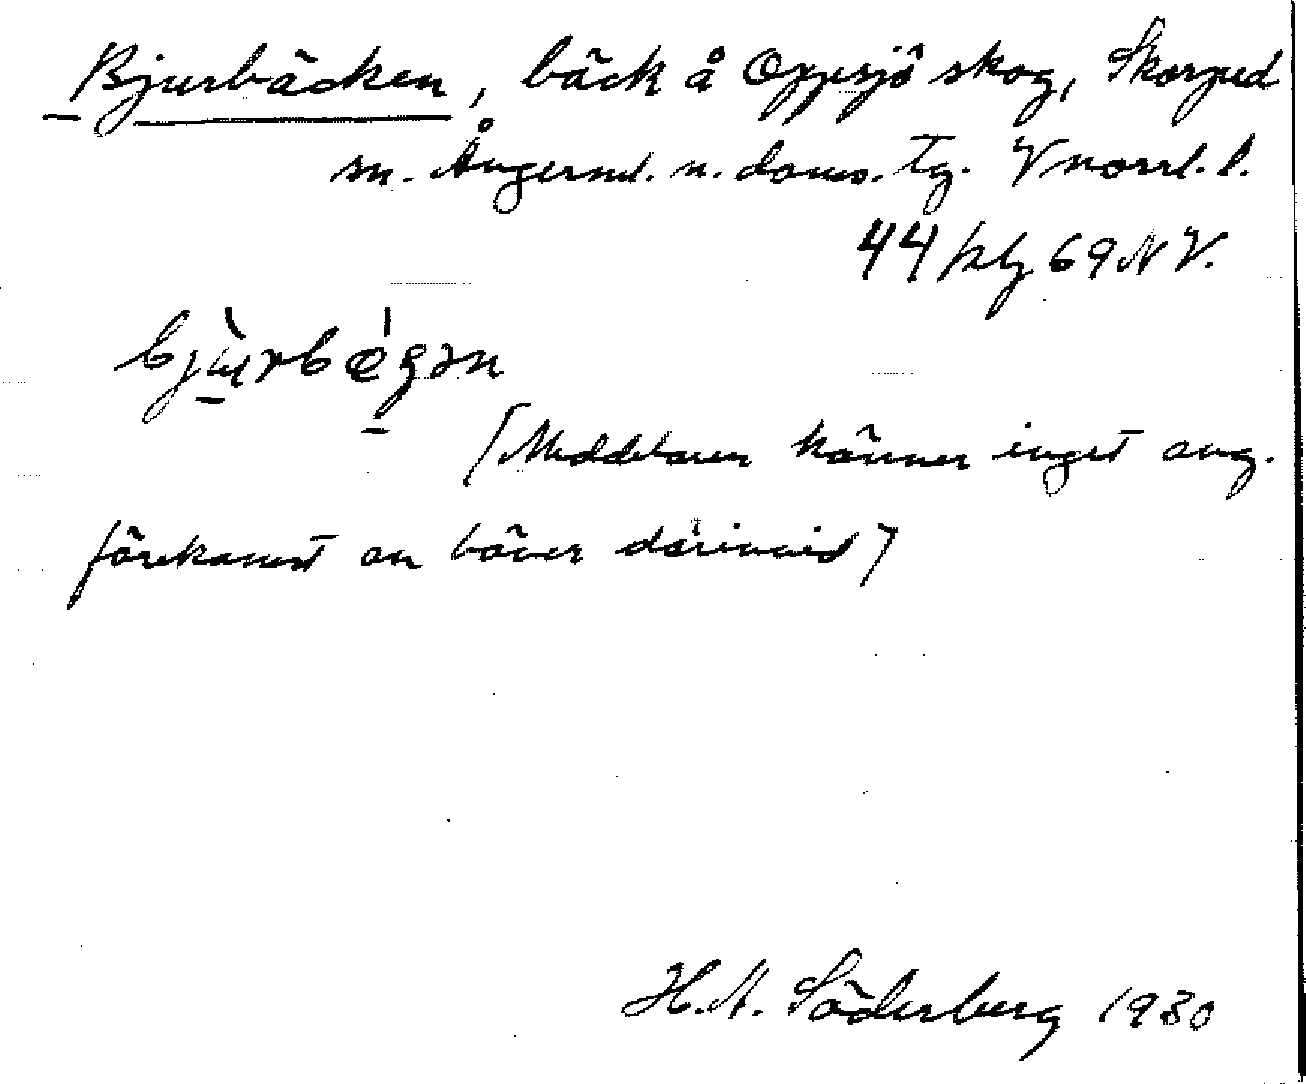 Bjurbäcken, bäck å Oppsjö skog, Skorped
sn. Ångerml. n. doms. tg. Vnorrl. l.
44 69 NV.
bjùrbǽgən
(Meddelaren känner inget ang.
förekomst av bäver därinvid)
H.A. Söderberg 1930